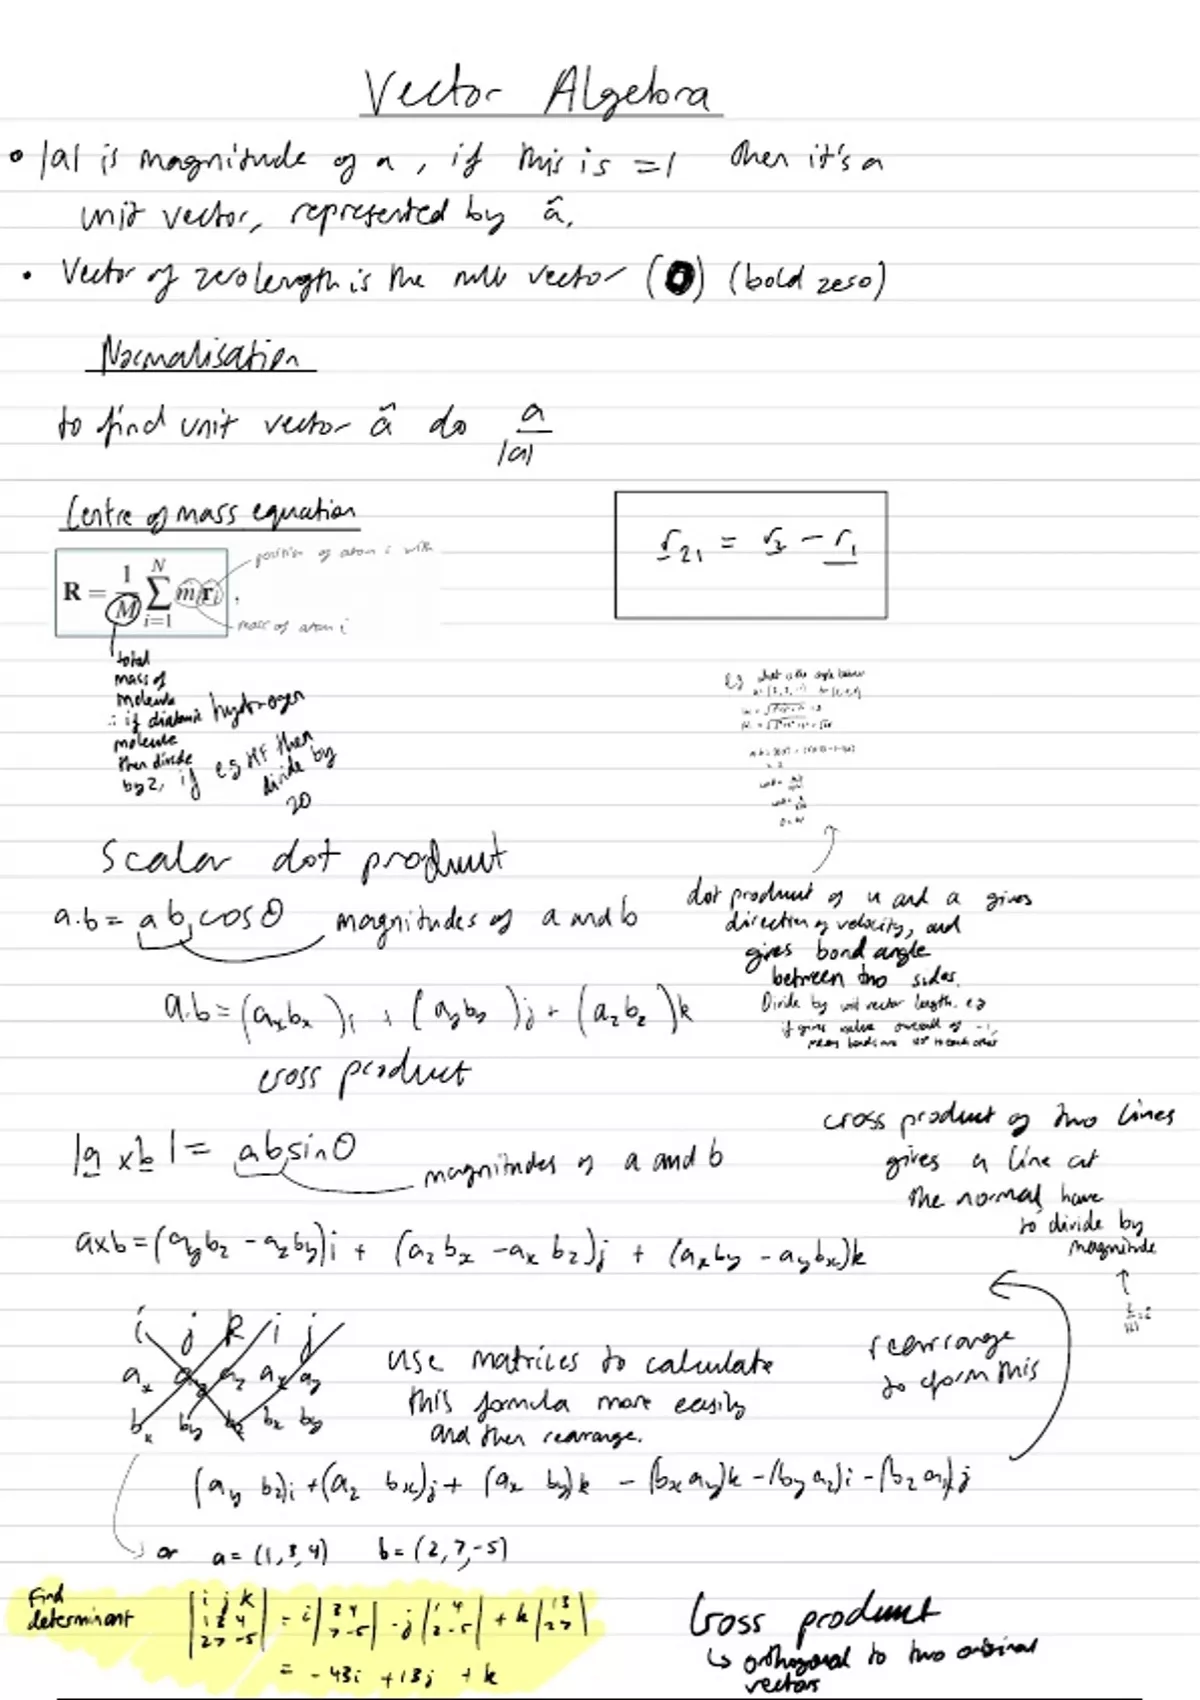 Vector Algebra
• |a| is magnitude of a, if this is =1 then it's a
unit vector, represented by â.
• Vector of zero length is the null vector (0) (bold zero)
Normalisation
to find unit vector â do a/|a|
Centre of mass equation
R = 1/M ∑ i=1 N m i r i ,
position of atom i with
mass of atom i
r₂₁ = r₂ − r₁
total
mass of
molecule
∴ if diatomic hydrogen
molecule
then divide
by 2, if e.g HF then
divide by
20
e.g what is the angle between
Scalar dot product
a.b = ab cosθ magnitudes of a and b
a.b = (aₓbₓ)i + (a_y b_y)j + (a_z b_z)k
dot product of u and a gives
direction of velocity, and
gives bond angle
between two sides.
Divide by unit vector length. e.g
if gives value overall of -1,
mean bonds are to each other
cross product
|a × b| = ab sinθ
magnitudes of a and b
cross product of two lines
gives a line at
the normal, have
to divide by
magnitude
a×b = (a_y b_z − a_z b_y)i + (a_z b_x − a_x b_z)j + (a_x b_y − a_y b_x)k
i j k i j
a_x a_y a_z a_x a_y
b_x b_y b_z b_x b_y
use matrices to calculate
this formula more easily
and then rearrange.
rearrange
to form this
(a_y b_z)i + (a_z b_x)j + (a_x b_y)k − (b_x a_y)k − (b_y a_z)i − (b_z a_x)j
or a = (1,3,4) b = (2,7,-5)
Find
determinant
|i j k|
|1 3 4|
|2 7 -5|
= i|3 4| - j|1 4| + k|1 3|
|7 -5| |2 -5| |2 7|
= -43i + 13j + k
Cross product
↳ orthogonal to two original
vectors